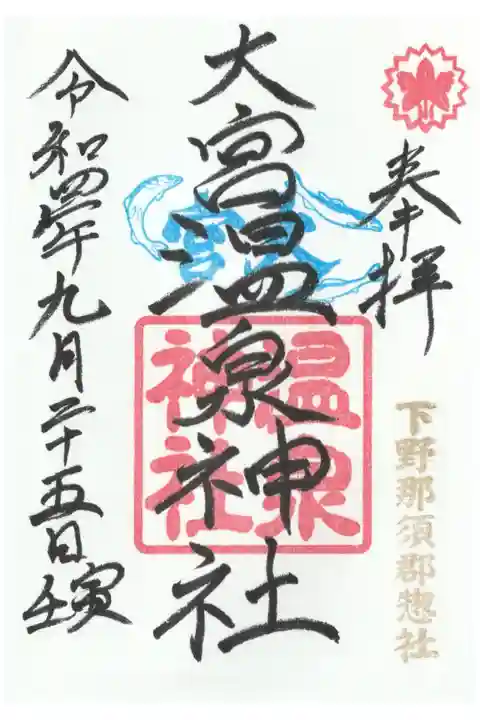 奉拝
下野那須郡惣社
大宮温泉神社
温泉
神社
令和四年九月二十五日
壬寅